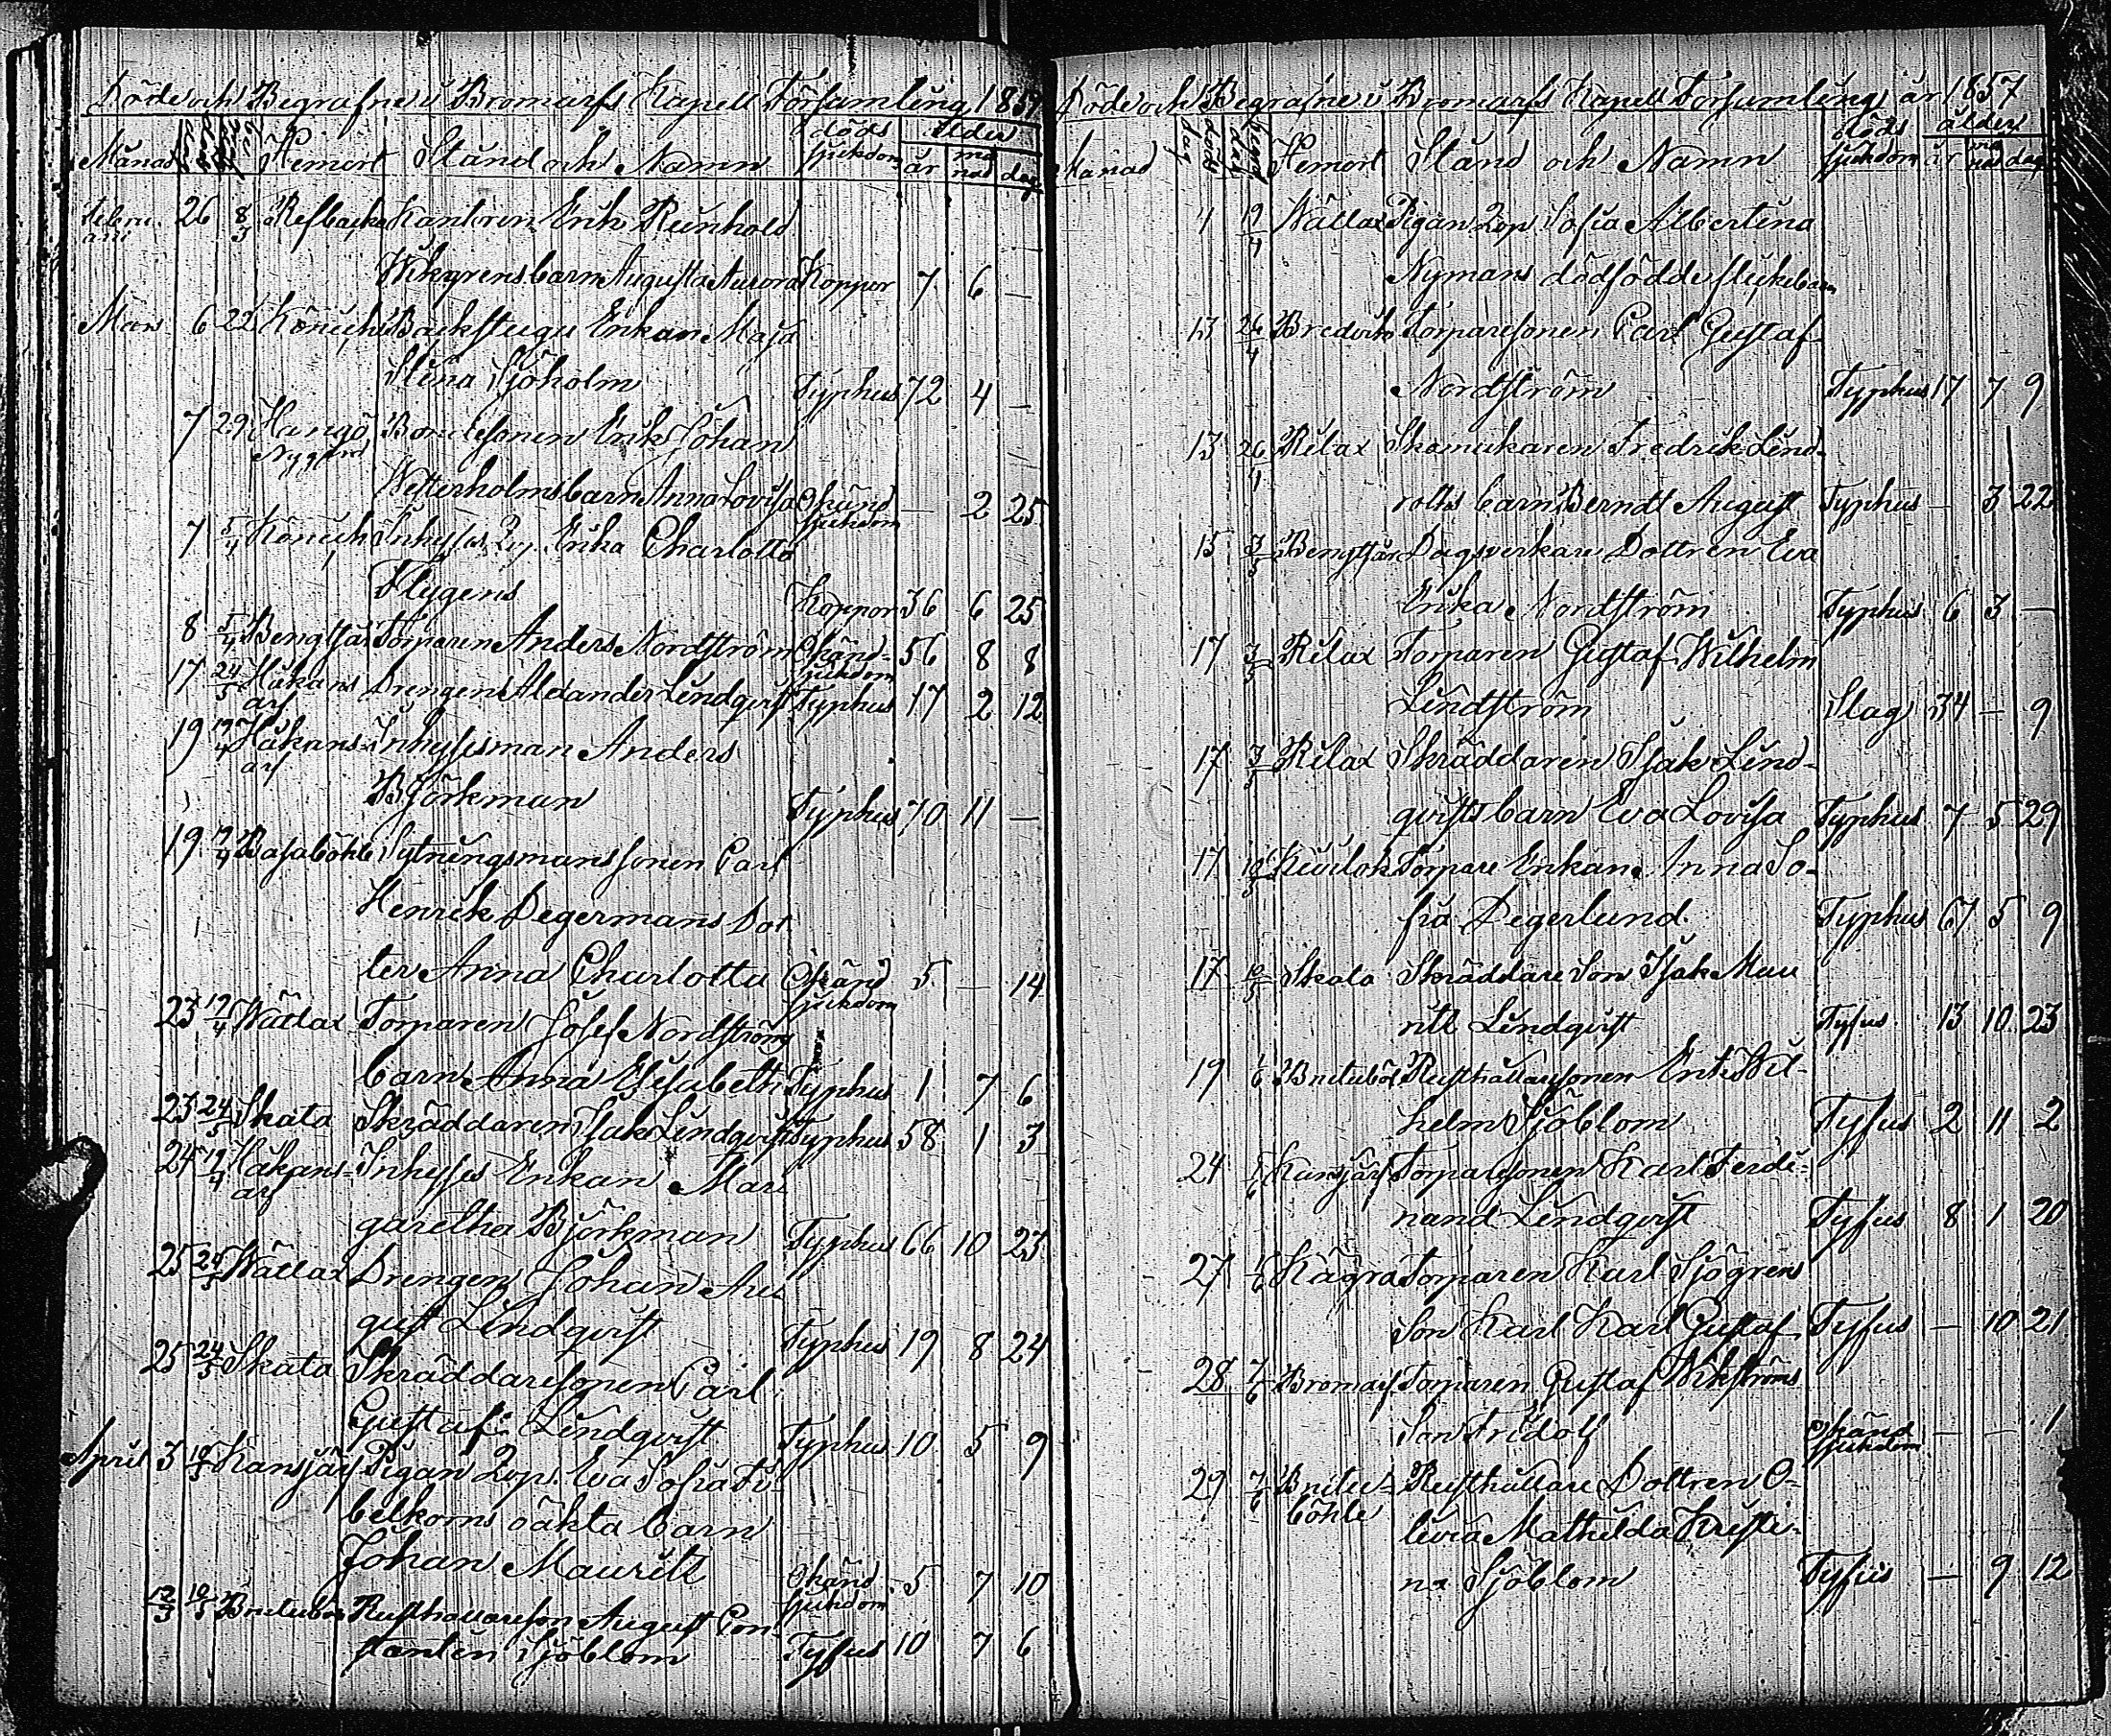 Döde och Begrafne i Bromarfs Kapell Församling 1857
Månad Hemort Stånd och Namn döds sjukdom ålder år må nad dag
Febru arii 26 8/3 Refbacka Kantoren Erik Reinhold
Wikgrens barn Augusta Aurora Koppor 7 6 —
Mars 6 22 Backstugu Enkan Maja
Stina Sjöholm Typhus 72 4 —
7 29 Hangö Nygård Bondesonen Erik Johan
Westerholms barn Anna Lovisa Okänd sjukdom — 2 25
7 5/4 Inhyses Qvp. Erika Charlotta
Flygens Koppor 36 6 25
8 5/4 Bengtsår Torparen Anders Nordström Okänd sjukdom 56 8 8
17 24/5 Håkans arf Drengen Alexander Lindqvist Typhus 17 2 12
19 19/4 Håkans arf Inhysesman Anders
Björkman Typhus 70 11 —
19 19/4 Basaböhle Sytningsmans sonen Carl
Henrik Degermans Dot
ter Anna Charlotta Okänd sjukdom 5 — 14
23 19/4 Wättlax Torparen Josef Nordströms
barn Anna Elisabeth Typhus 1 7 6
23 24/5 Skata Skräddaren Isak Lindqvist Typhus 58 1 3
24 19/4 Håkans- arf Inhyses Enkan Mar
garetha Björkman Typhus 66 10 23
25 24/5 Wättlax Drengen Johan Au
gust Lindqvist Typhus 19 8 24
25 24/5 Skata Skräddaresonen Carl
Gustaf Lindqvist Typhus 10 5 9
April 3 10/5 Kansjärf Pigan Qvp. Eva Sofia Fi-
belkorns oäkta barn
Johan Mauritz Okänd sjukdom 5 7 10
12/3 10/5 Rusthållareson August Con
stantin Sjöblom Tyfus 10 7 6
Döde och Begrafne i Bromarfs Kapell Församling år 1857
Månad dag döds begr dag Hemort Stånd och Namn döds sjukdom ålder år må nad dag
4 19/4 Wättlax Pigan Qvp Sofia Albertina
Nymans dödfödde flickebarn
13 26/4 Bredvik Torparesonen Carl Gustaf
Nordström Typhus 17 7 9
13 26/4 Rilax Skomakaren Fredrik Lind-
roths barn Berndt August Typhus — 3 22
15 3/5 Bengtsår Dagsverkare Dottren Eva
Erika Nordström Typhus 6 3 —
17 3/5 Rilax Torparen Gustaf Wilhelm
Lindström Slag 34 — 9
17 3/5 Rilax Skräddaren Isak Lind-
qvists barn Eva Lovisa Typhus 7 5 29
17 10/5 Torpare Enkan Anna So-
fia Degerlund Typhus 67 5 9
17 10/5 Skata Skräddare Son Isak Mau
ritz Lindqvist Tyfus 13 10 23
19 1/6 Rusthållaresonen Erik Wil-
helm Sjöblom Tyfus 2 11 2
24 1/6 Kansjärf Torparesonen Karl Ferdi-
nand Lindqvist Tyfus 8 1 20
27 1/6 Kägra Torparen Karl Sjögrens
Son Karl Karl Gustaf Tyfus — 10 21
28 7/6 Bromarf Torparen Gustaf Wikströms
Son Fridolf Okänd sjukdom — — 1
29 7/6 böhle Rusthållare Dottren O-
livia Mathilda Kristi-
na Sjöblom Tyfus — 9 12